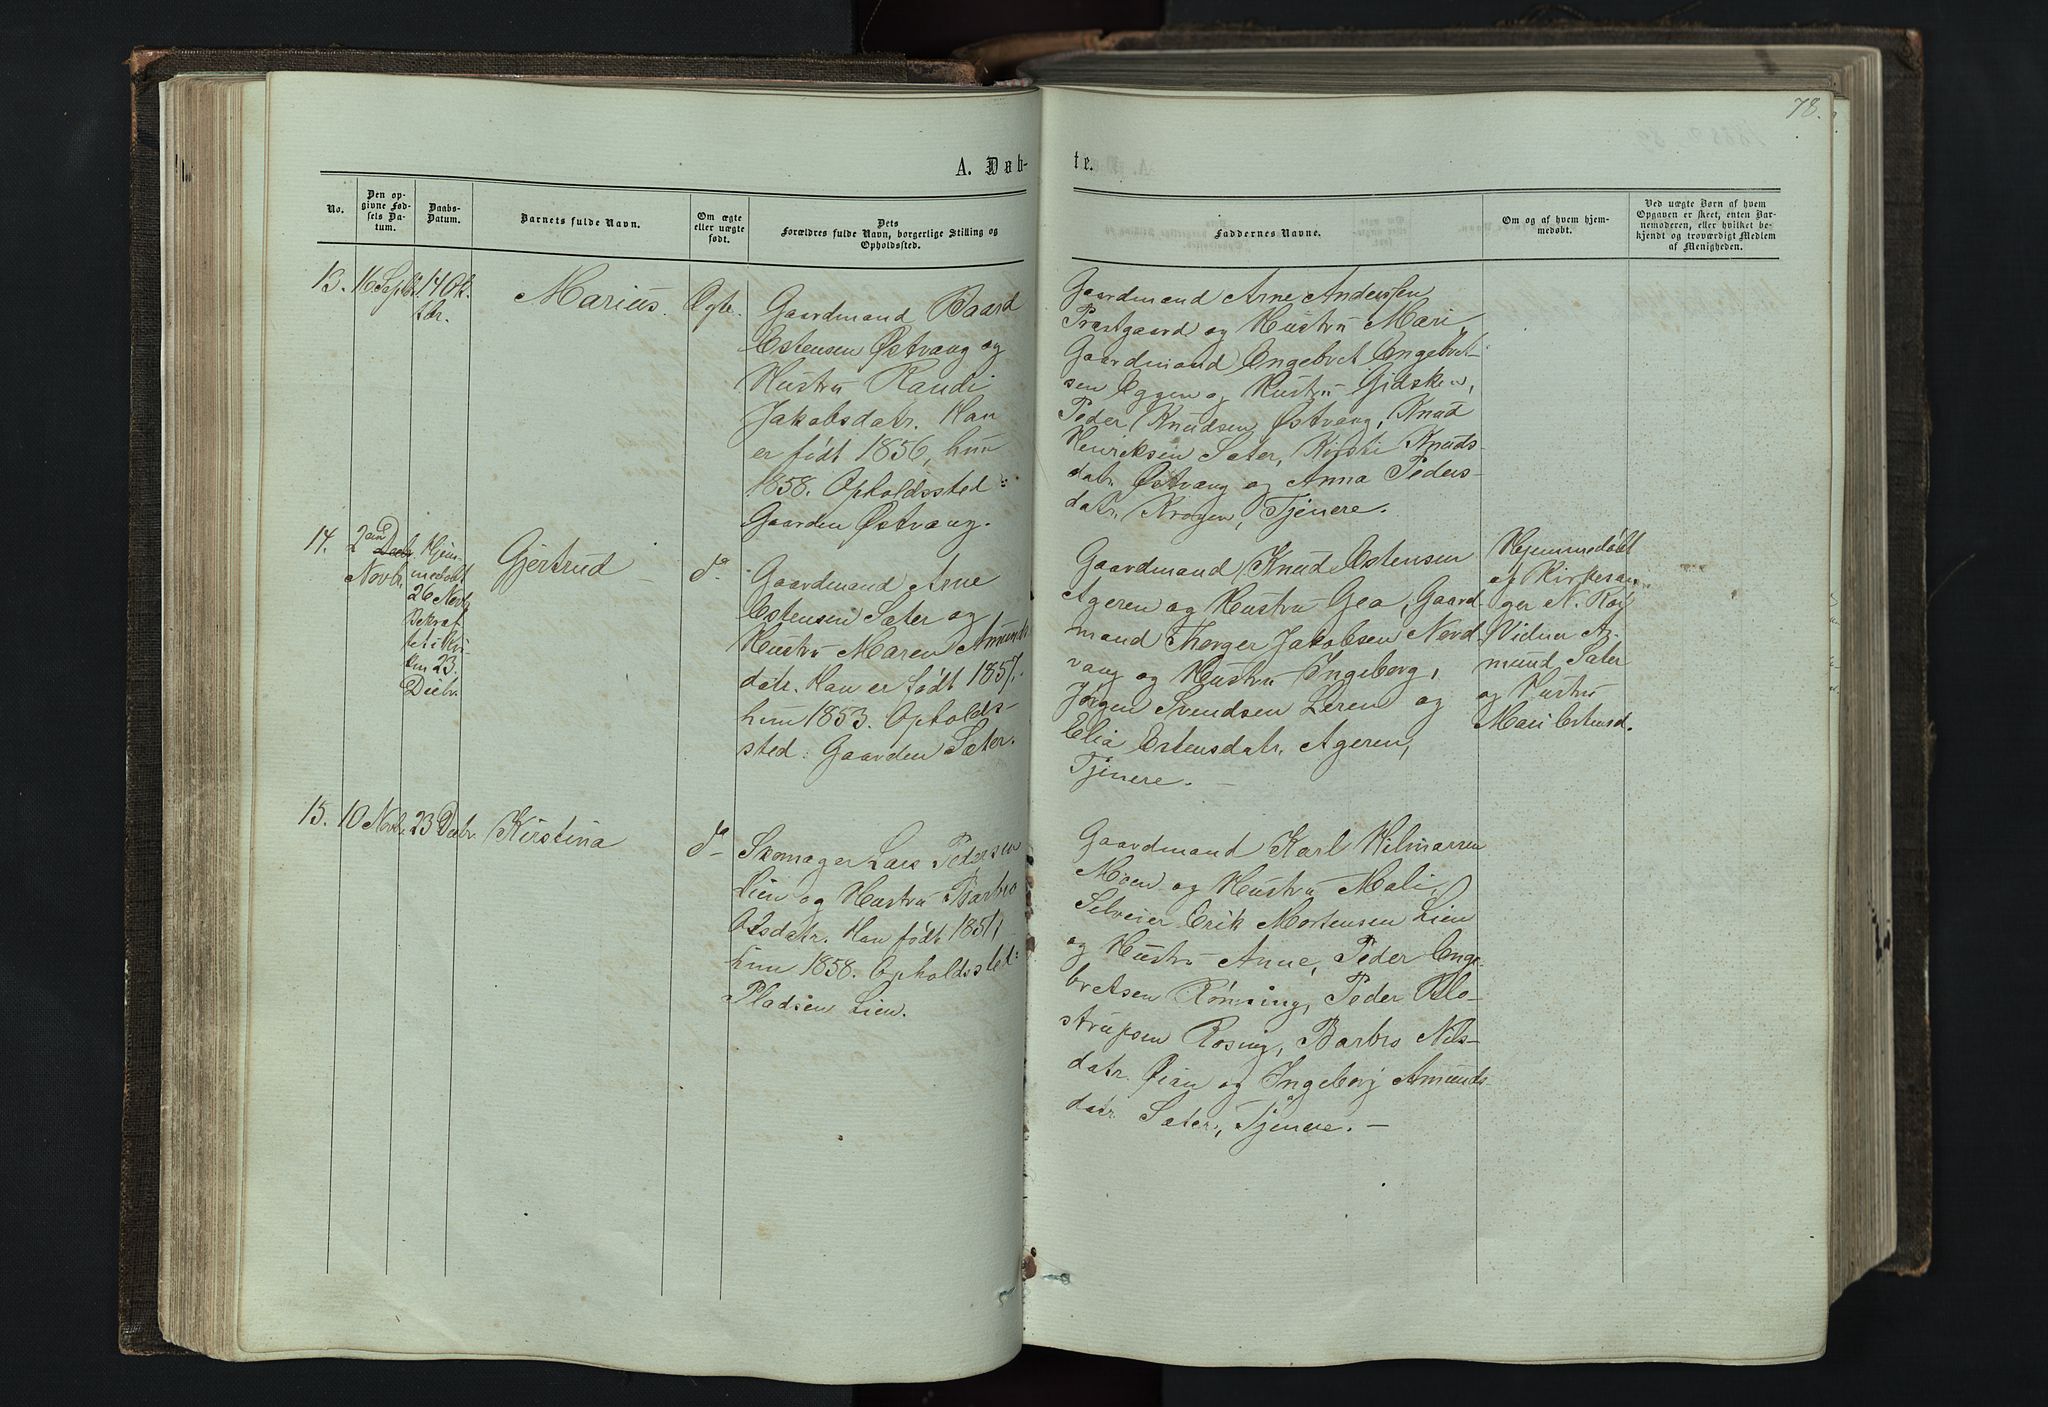 78.
A. Døb-
te.
No.
Den op-
givne Fød-
sels Da-
tum.
Daabs-
Datum.
Barnets fulde Navn.
Om ægte
eller uægte
født.
Dets
Forældres fulde Navn, borgerlige Stilling og
Opholdssted.
Faddernes Navne.
Om og af hvem hjem-
medøbt.
Ved uægte Børn af hvem
Opgaven er skeet, enten Bar-
nemoderen, eller hvilket be-
kjendt og troværdigt Medlem
af Menigheden.
13.
16 Septbr.
14 Ok-
tbr.
Marius.
Ægte.
Gaardmand Baard
Estensen Østvang og
Hustru Randi
Jakobsdatr. Han
er født 1856, hun
1858. Opholdssted:
Gaarden Østvang.
Gaardmand Arne Anderssen
Præstgaard og Hustru Mari,
Gaardmand Engebret Engebret-
sen Eggen og Hustru Gjdsken,
Peder Knudsen Østvang, Knud
Henriksen Sæter, Kirsti Knuds-
datr. Østvang og Anna Peders-
datr. Krogen, Tjenere.
14.
2den
Novbr.
Hjem-
medøbt
26 Novbr
Bekræf
tet i Kir-
ken 23.
Dicbr.
Gjertrud
do
Gaardmand Arne
Estensen Sæter og
Hustru Maren Amunds
datr. Han er født 1857.
hun 1853. Opholds-
sted: Gaarden Sæter.
Gaardmand Knud Estensen
Ageren og Hustru Gea, Gaard-
mand Thorger Jakobsen Nord-
vang og Hustru Ingeborg,
Jørgen Svendsen Leren og
Elia Estensdatr. Ageren,
Tjenere. -
Hjemmedøbt
af Kirkesan-
ger N. Røe
Vidner A-
mund Sæter
og Hustru
Mari Estensd.
15.
10 Novbr.
23 Decbr.
Kirstina
do
Skomager Lars Pedersen
Lien og Hustru Barbro
Olsdatr. Han født 1851,
hun 1858. Opholdssted:
Pladsen Lien.
Gaardmand Karl Hilmarsen
Moen og Hustru Mali,
Selveier Erik Mortensen Lien
og Hustru Anne, Peder Enge-
bretsen Rønning, Peder Klo-
strupsen Rosing, Barbro Nils-
datr. Øian og Ingeborg Amunds
datr. Sæter, Tjenere. -